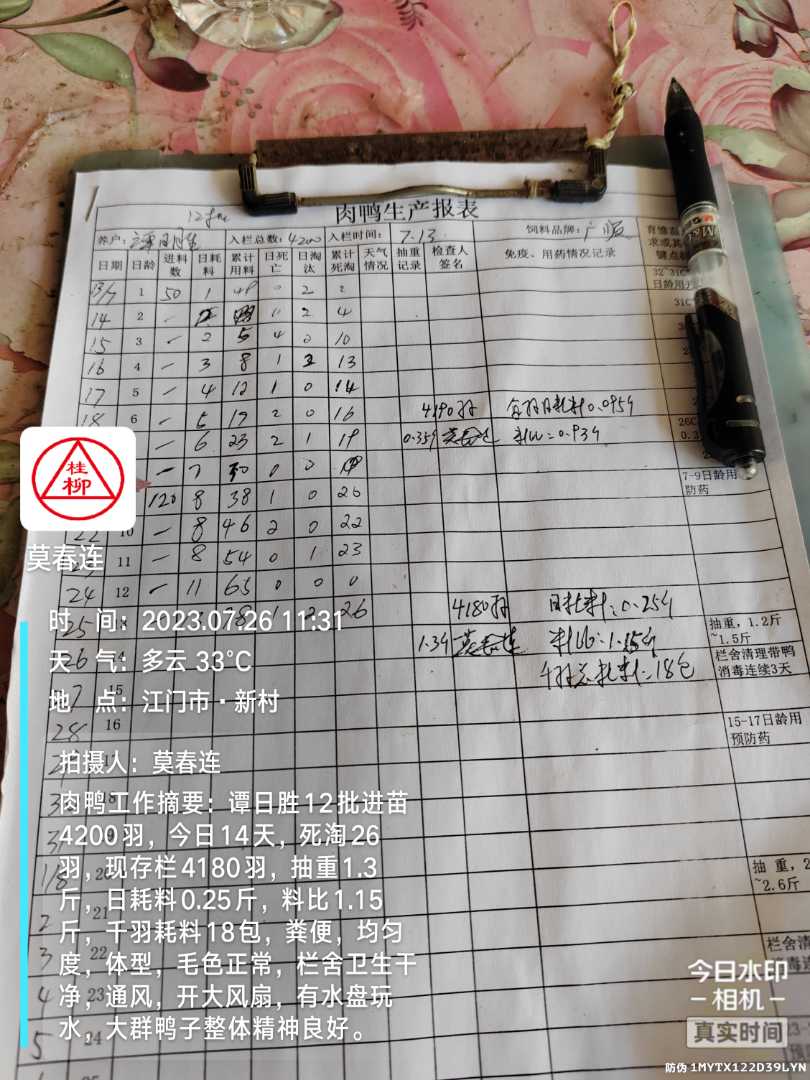 肉鸭生产报表
养户: 谭日胜 入栏总数: 4200 入栏时间: 7.13 饲料品牌:
日期 日龄 进料数 日耗料 累计用料 日死亡 日淘汰 累计死淘 天气情况 抽重记录 检查人签名 免疫、用药情况记录
13/7 1 50 1 0 2 2
14 2 - 0 2 4
15 3 - 2 5 4 0 10
16 4 - 3 8 1 2 13
17 5 - 4 12 1 0 14
18 6 - 5 17 2 0 16 4190羽
- 6 23 2 1 19 0.359 莫春连
- 7 30 0 0 19
7-9日龄用
防药
120 8 38 1 0 20
22 10 - 8 46 2 0 22
11 - 8 54 0 1 23
24 12 - 11 65 0 0 0
25 26 4180羽 日耗料:0.25斤
抽重,1.2斤
~1.5斤
莫春连 料比:1.15斤
26 14 千羽总耗料:18包
栏舍清理带鸭
消毒连续3天
15
28 16
15-17日龄用
预防药
1/8 20
抽 重, 2
~2.6斤
2 21
3 22
栏舍清
4 23
5 24
25
桂柳
莫春连
时 间: 2023.07.26 11:31
天 气: 多云 33℃
地 点: 江门市·新村
拍摄人: 莫春连
肉鸭工作摘要: 谭日胜12批进苗
4200羽,今日14天,死淘26
羽,现存栏4180羽,抽重1.3
斤,日耗料0.25斤,料比1.15
斤,千羽耗料18包,粪便,均匀
度,体型,毛色正常,栏舍卫生干
净,通风,开大风扇,有水盘玩
水,大群鸭子整体精神良好。
今日水印
-相机-
真实时间
防伪 1MYTX122D39LYN